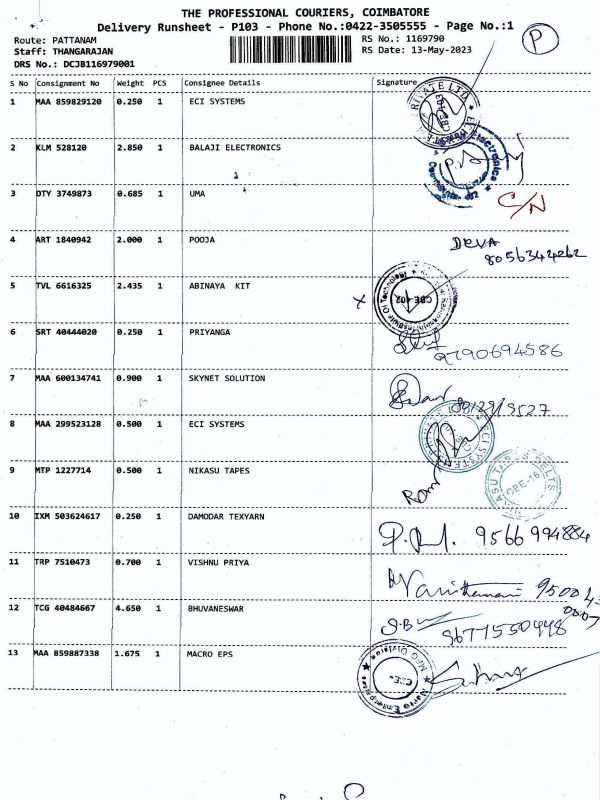 THE PROFESSIONAL COURIERS, COIMBATORE
Delivery Runsheet - P103 - Phone No.:0422-3505555 - Page No.:1
Route: PATTANAM
Staff: THANGARAJAN
DRS No.: DCJB116979001
RS No.: 1169790
RS Date: 13-May-2023
P
S No Consignment No Weight PCS Consignee Details Signature
1 MAA 859829120 0.250 1 ECI SYSTEMS
2 KLM 528120 2.850 1 BALAJI ELECTRONICS
3 DTY 3749873 0.685 1 UMA C/N
4 ART 1840942 2.000 1 POOJA DEVA
8056344262
5 TVL 6616325 2.435 1 ABINAYA KIT X CBE-402
6 SRT 40444020 0.250 1 PRIYANGA
9790694586
7 MAA 600134741 0.900 1 SKYNET SOLUTION
8 MAA 299523128 0.500 1 ECI SYSTEMS
9 MTP 1227714 0.500 1 NIKASU TAPES CBE-16
Ram
10 IXM 503624617 0.250 1 DAMODAR TEXYARN 9566994884
11 TRP 7510473 0.700 1 VISHNU PRIYA
12 TCG 40484667 4.650 1 BHUVANESWAR S.B
9677550448
13 MAA 859887338 1.675 1 MACRO EPS